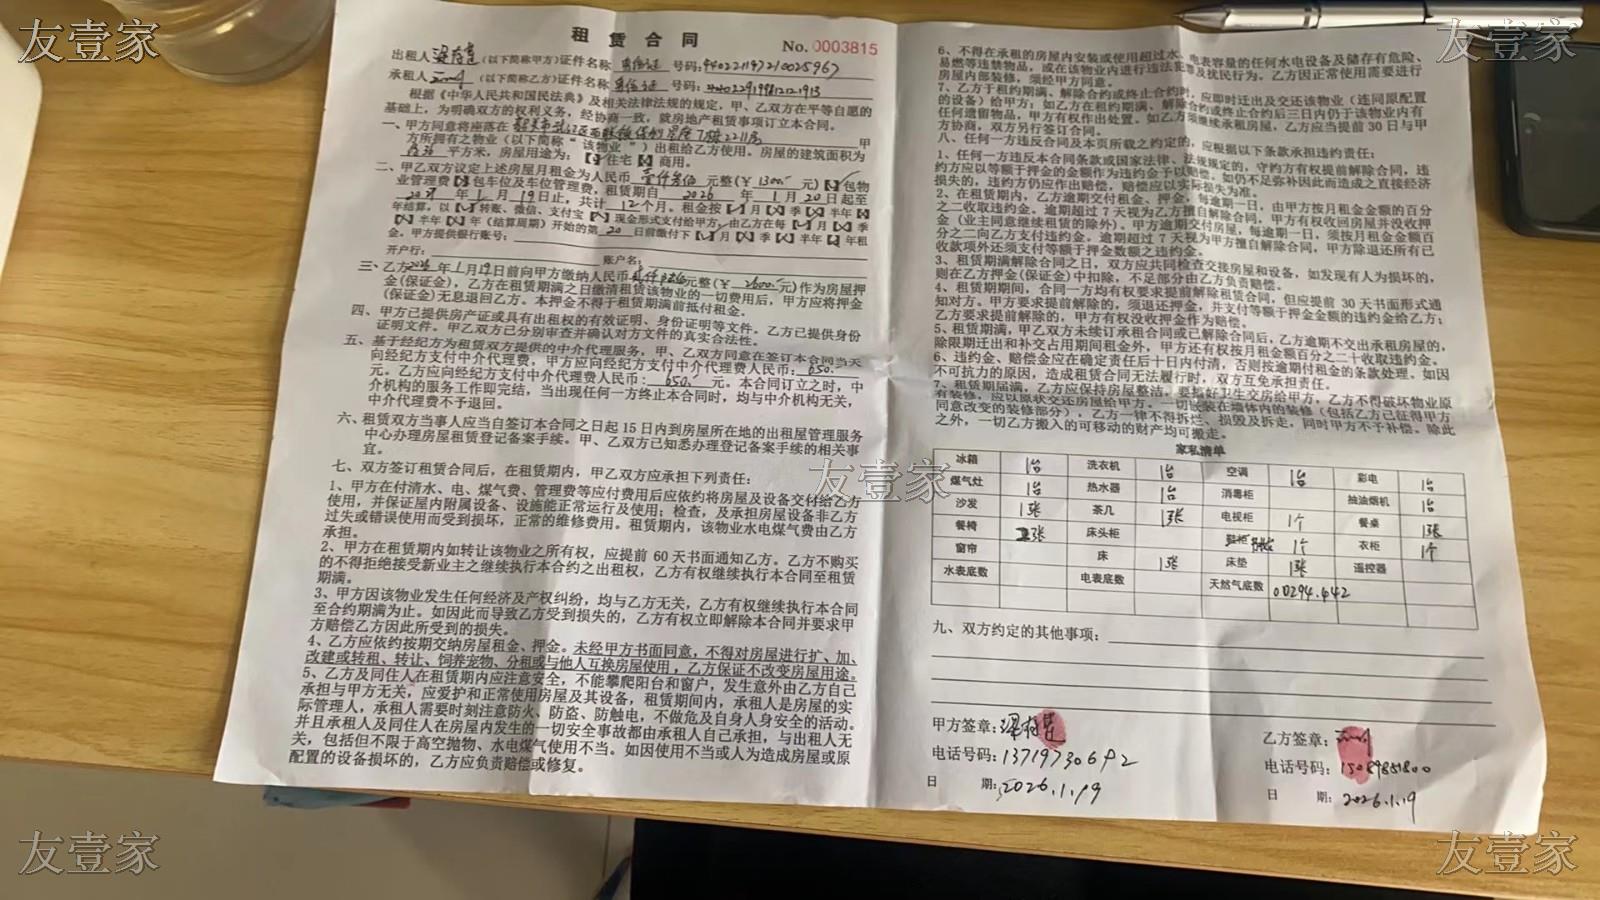 友壹家
友壹家
租赁合同
No.0003815
出租人 (以下简称甲方)证件名称 身份证 号码:440221197210025967
承租人 (以下简称乙方)证件名称 身份证 号码:
根据《中华人民共和国民法典》及相关法律法规的规定，甲、乙双方在平等自愿的
基础上，为明确双方的权利义务，经协商一致，就房地产租赁事项订立本合同。
一、甲方同意将座落在 甲
方所拥有之物业（以下简称“该物业”）出租给乙方使用。房屋的建筑面积为
平方米，房屋用途为：【 】住宅【 】商用。
二、甲乙双方议定上述房屋月租金为人民币 壹仟叁佰 元整(￥ 1300 元)【 】包物
业管理费【 】包车位及车位管理费，租赁期自 2026 年 1 月 20 日起至
年 1 月 19 日止，共计 12 个月。租金按【 】月【 】季【 】半年【 】
年结算，以【 】转账、微信、支付宝【 】现金形式支付给甲方，由乙方在每【 】月【 】季
【 】半年【 】年（结算周期）开始的第 20 日前缴付下【 】月【 】季【 】半年【 】年租
金。甲方提供银行账号：
开户行： 账户名：
三、乙方2026年1月19日前向甲方缴纳人民币 元整(￥ 2600 元)作为房屋押
金(保证金)，乙方在租赁期满之日缴清租赁该物业的一切费用后，甲方应将押金
(保证金)无息退回乙方。本押金不得于租赁期满前抵付租金。
四、甲方已提供房产证或具有出租权的有效证明、身份证明等文件。乙方已提供身份
证明文件。甲乙双方已分别审查并确认对方文件的真实合法性。
五、基于经纪方为租赁双方提供的中介代理服务，甲、乙双方同意在签订本合同当天
向经纪方支付中介代理费，甲方应向经纪方支付中介代理费人民币：650
元。乙方应向经纪方支付中介代理费人民币：650 元。本合同订立之时，中
介机构的服务工作即完结，当出现任何一方终止本合同时，均与中介机构无关，
中介代理费不予退回。
六、租赁双方当事人应当自签订本合同之日起 15 日内到房屋所在地的出租屋管理服务
中心办理房屋租赁登记备案手续。甲、乙双方已知悉办理登记备案手续的相关事
宜。
七、双方签订租赁合同后，在租赁期内，甲乙双方应承担下列责任：
1、甲方在付清水、电、煤气费、管理费等应付费用后应依约将房屋及设备交付给乙方
使用，并保证屋内附属设备、设施能正常运行及使用；检查，及承担房屋设备非乙方
过失或错误使用而受到损坏，正常的维修费用。租赁期内，该物业水电煤气费由乙方
承担。
2、甲方在租赁期内如转让该物业之所有权，应提前 60 天书面通知乙方。乙方不购买
的不得拒绝接受新业主之继续执行本合约之出租权，乙方有权继续执行本合同至租赁
期满。
3、甲方因该物业发生任何经济及产权纠纷，均与乙方无关，乙方有权继续执行本合同
至合约期满为止。如因此而导致乙方受到损失的，乙方有权立即解除本合同并要求甲
方赔偿乙方因此所受到的损失。
4、乙方应依约按期交纳房屋租金、押金。未经甲方书面同意，不得对房屋进行扩、加、
改建或转租、转让、饲养宠物、分租或与他人互换房屋使用，乙方保证不改变房屋用途。
5、乙方及同住人在租赁期内应注意安全，不能攀爬阳台和窗户，发生意外由乙方自己
承担与甲方无关，应爱护和正常使用房屋及其设备，租赁期间内，承租人是房屋的实
际管理人，承租人需要时刻注意防火、防盗、防触电，不做危及自身人身安全的活动。
并且承租人及同住人在房屋内发生的一切安全事故都由承租人自己承担，与出租人无
关，包括但不限于高空抛物、水电煤气使用不当。如因使用不当或人为造成房屋或原
配置的设备损坏的，乙方应负责赔偿或修复。
6、不得在承租的房屋内安装或使用超过水、电表容量的任何水电设备及储存有危险、
易燃等违禁物品，或在该物业内进行违法犯罪及扰民行为。乙方因正常使用需要进行
房屋内部装修，须经甲方同意。
7、乙方于租约期满、解除合约或终止合约时，应即时迁出及交还该物业（连同原配置
的设备）给甲方；如乙方在租约期满、解除合约或终止合约后三日内仍于该物业内有
任何遗留物品，甲方有权作出处置。如乙方须继续承租房屋，乙方应当提前 30 日与甲
方协商，双方另行签订合同。
八、任何一方违反合同及本页所载之约定的，应根据以下条款承担违约责任：
1、任何一方违反本合同条款或国家法律、法规规定的，守约方有权提前解除合同，违
约方应以等额于押金的金额作为违约金予以赔偿，如仍不足弥补因此而造成之直接经济
损失的，违约方仍应作出赔偿，赔偿应以实际损失为准。
2、在租赁期内，乙方逾期交付租金、押金，每逾期一日，由甲方按月租金金额的百分
之二收取违约金。逾期超过 7 天视为乙方擅自解除合同，甲方有权收回房屋并没收押
金（业主同意继续租赁的除外）。甲方逾期交付房屋，每逾期一日，须按月租金金额百
分之二向乙方支付违约金。逾期超过 7 天视为甲方擅自解除合同，甲方除退还所有已
收款项外还须支付等额于押金数额之违约金。
3、租赁期满解除合同之日，双方应共同检查交接房屋和设备，如发现有人为损坏的，
则在乙方押金(保证金)中扣除，不足部分由乙方负责赔偿。
4、租赁期期间，合同一方均有权要求提前解除租赁合同，但应提前 30 天书面形式通
知对方。甲方要求提前解除的，须退还押金，并支付等额于押金金额的违约金给乙方；
乙方要求提前解除的，甲方有权没收押金作为赔偿。
5、租赁期满，甲乙双方未续订承租合同或已解除合同后，乙方逾期不交出承租房屋的，
除限期迁出和补交占用期间租金外，甲方还有权按月租金额百分之二十收取违约金。
6、违约金、赔偿金应在确定责任后十日内付清，否则按逾期付租金的条款处理。如因
不可抗力的原因，造成租赁合同无法履行时，双方互免承担责任。
7、租赁期届满，乙方应保持房屋整洁，要搞好卫生交房给甲方，乙方不得破坏物业原
有装修，应以原状交还房屋给甲方。一切嵌装在墙体内的装修（包括乙方已征得甲方
同意改变的装修部分），乙方一律不得拆烂、损毁及拆走，同时甲方不予补偿。除此
之外，一切乙方搬入的可移动的财产均可搬走。
家私清单
冰箱 1台 洗衣机 1台 空调 1台 彩电 1台
煤气灶 1台 热水器 1台 消毒柜 抽油烟机 1台
沙发 1张 茶几 1张 电视柜 1个 餐桌 1张
餐椅 张 床头柜 鞋柜 1个 衣柜 1个
窗帘 床 1张 床垫 1张 遥控器
水表底数 电表底数 天然气底数 00294.442
九、双方约定的其他事项：
甲方签章：
电话号码：13719730692
日 期：2026.1.19
乙方签章：
电话号码：15089851800
日 期：2026.1.19
友壹家
友壹家
友壹家